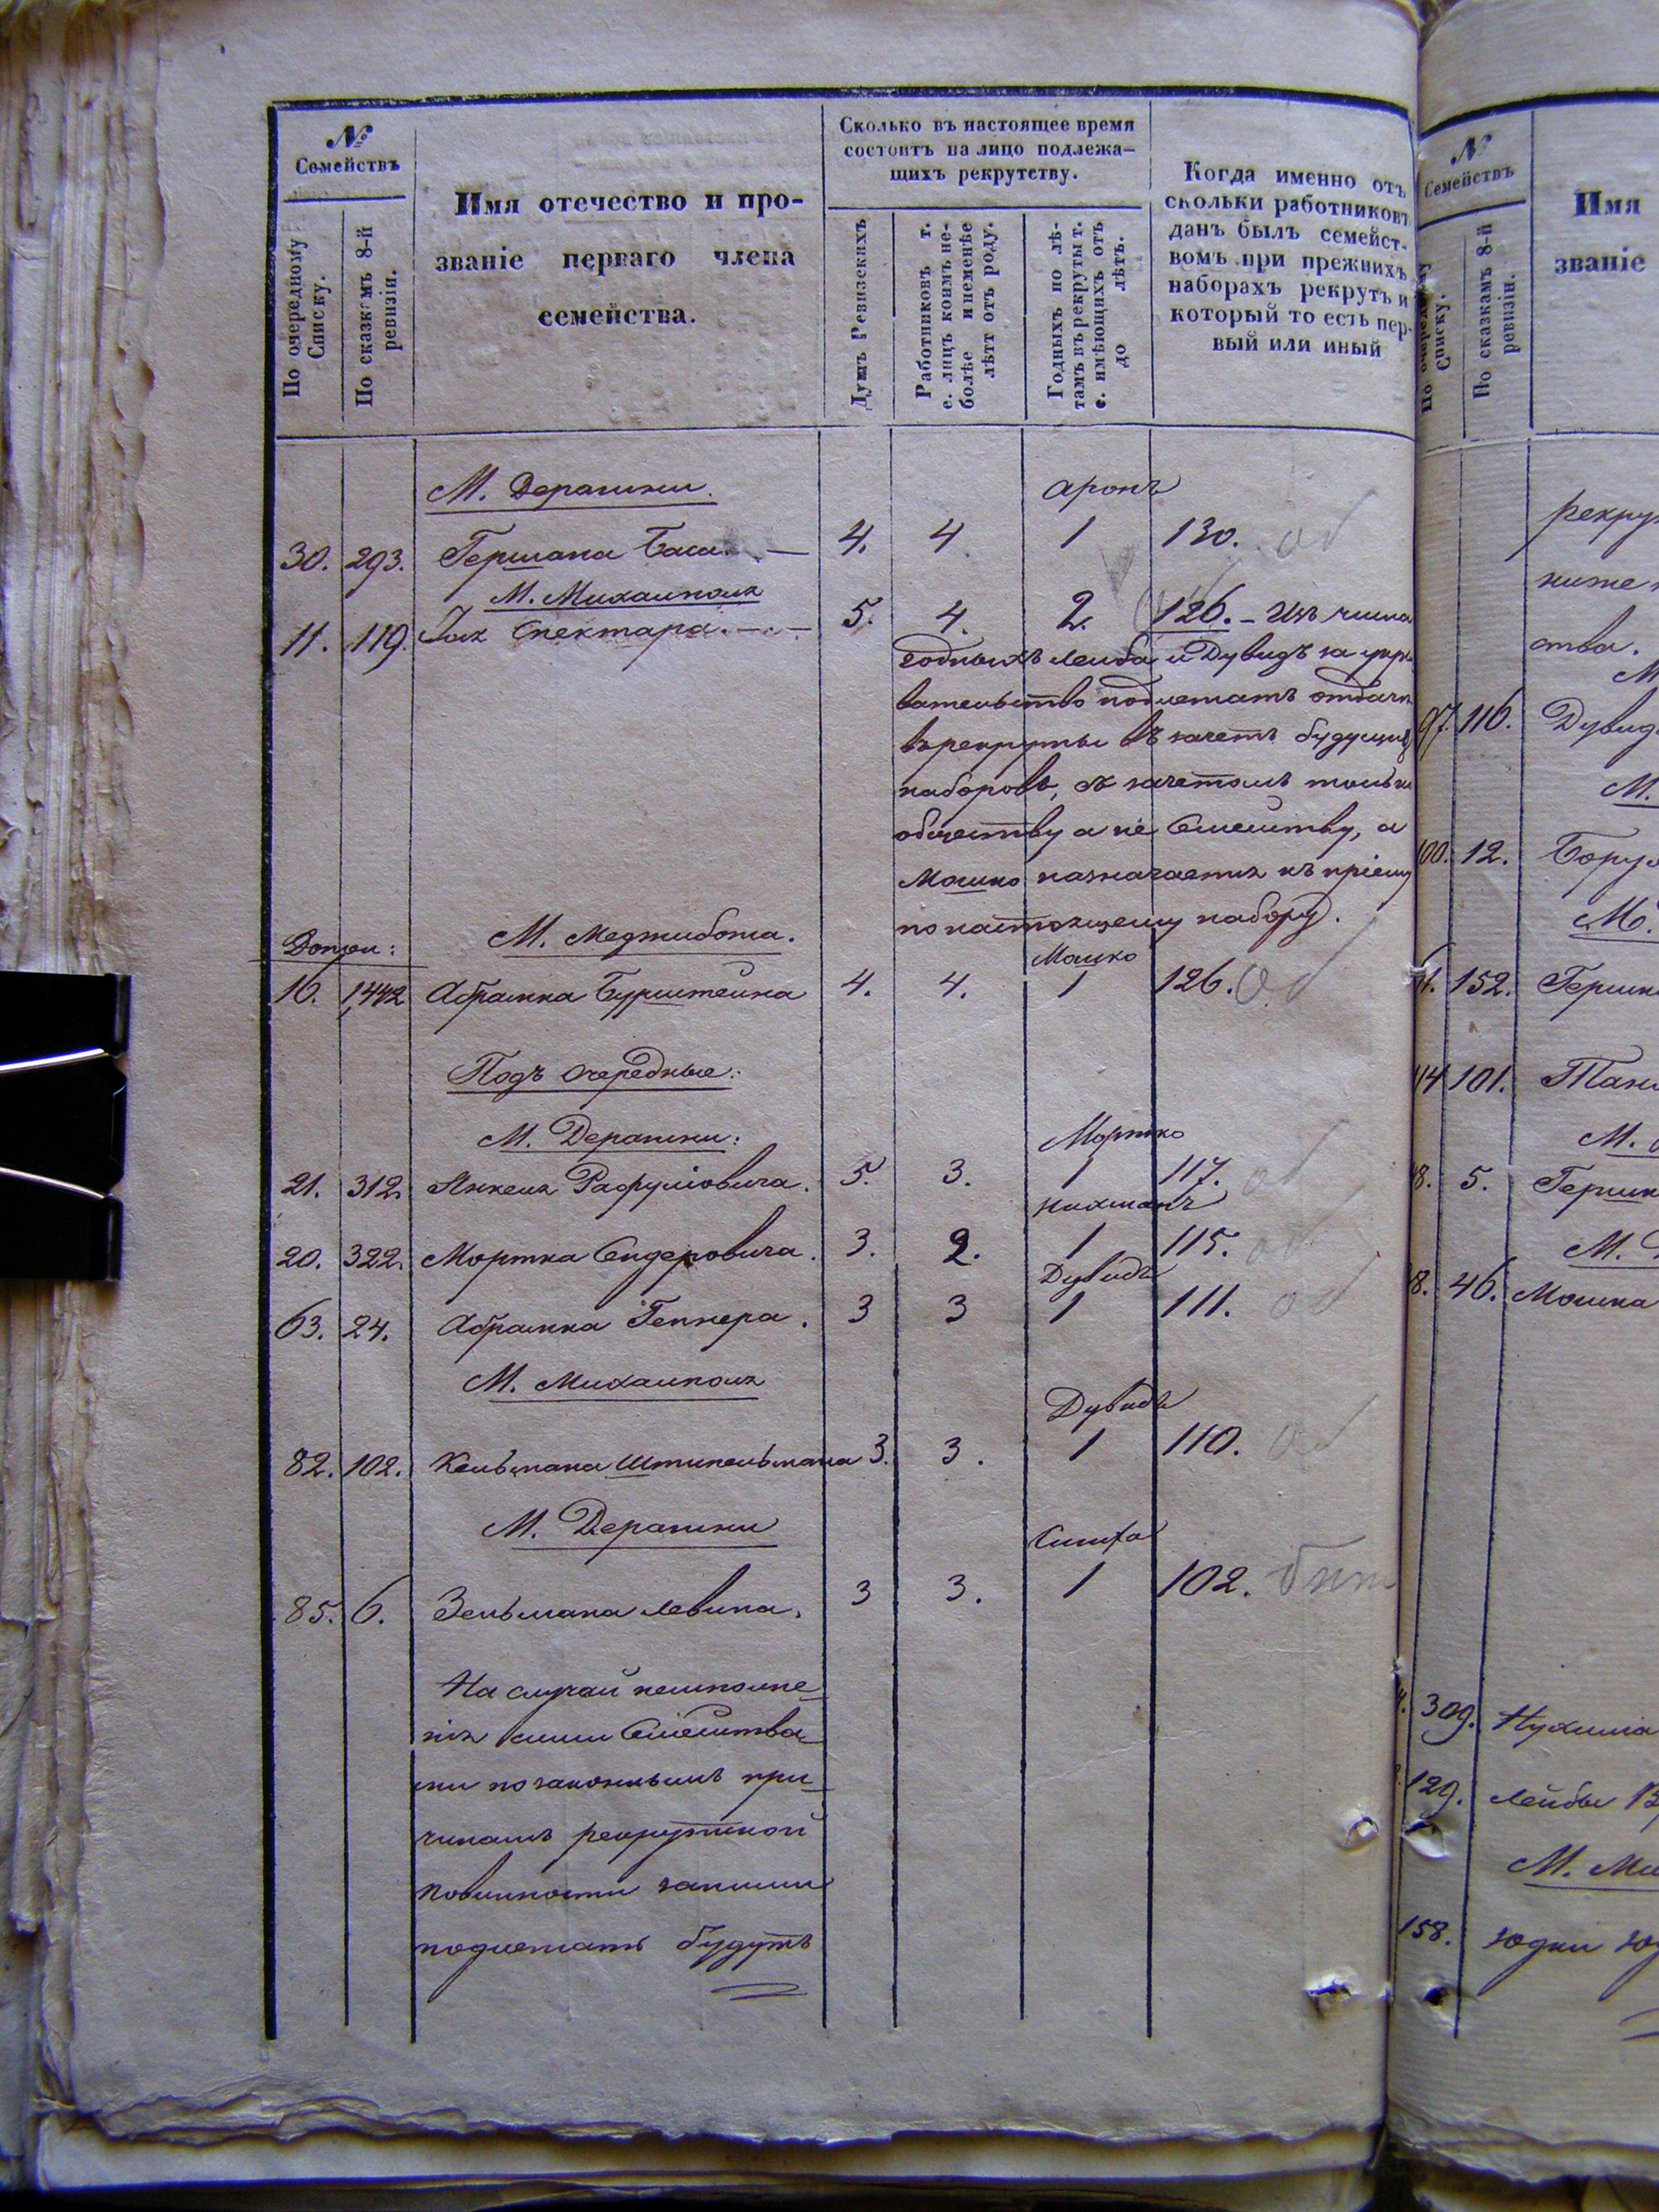 №
Семействъ
По очередному Списку.
По сказкамъ 8-й ревизіи.
Имя отечество и про-
званіе перваго члена
семейства.
Сколько въ настоящее время
состоитъ на лицо подлежа-
щихъ рекрутству.
Душъ Ревизскихъ
Работниковъ т.
е. лицъ коимъ не-
болѣе и неменѣе
лѣтт отъ роду.
Годныхъ по лѣ-
тамъ въ рекруты т.
е. имѣющихъ отъ
до лѣтъ.
Когда именно отъ
скольки работниковъ
данъ былъ семейст-
вомъ при прежнихъ
наборахъ рекрутъ и
который то есть пер-
вый или иный
М. Деражни. Аронъ
30. 293. Гершана Баси 4. 4 1 130.
М. Михаиполя
11. 119. Спектара 5. 4. 2. 126. – Изъ числа
годныхъ Лейба и Дувидъ за укры
вательство подлежатъ отдачи
въ рекруты въ зачетъ будущихъ
наборовъ, съ зачетомъ только
обществу а не Семейству, а
Мошко назначается къ пріему
по настоящему набору.
М. Меджибожа. Мошко
16. 1,442 Абрамка Бурштейна 4. 4. 1 126.
Подъ очередные:
М. Деражни: Мортко
21. 312. Янкеля Рафуловича. 5. 3. 1 117.
Нахманъ
20. 322. Мортка Сендеровича. 3. 2. 1 115.
Дувидъ
63. 24. Абрамка Гепнера. 3 3 1 111.
М. Михаиполя
Дувидъ
82. 102. Кельмана Штипельмана 3. 3. 1 110.
М. Деражни
Симха
85. 6. Зельмана Левина. 3 3. 1 102.
На случай неисполне-
нія сими Семейства-
ми по законнымъ при-
чинамъ рекрутской
повинности за ними
подлежать будутъ
№
Семействъ
По очередному Списку.
По сказкамъ 8-й ревизіи.
Имя
званіе
ниже
ства.
97. 116. Дувид
М.
100. 12. Борух
М.
152. Гершк
101.
М.
8. 5. Гершк
М.
8. 46. Мошка
309. Нухима
129. Лейбы
М. Ми
158. Юдки